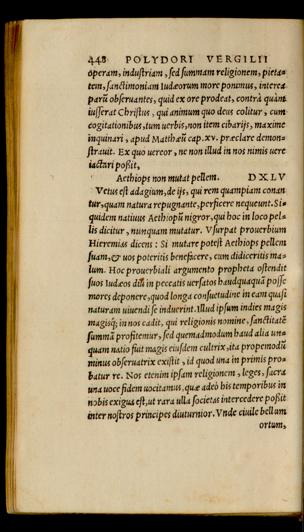 448 POLYDORI VERGILII
operam, industriam, sed summam religionem, pieta-
tem, sanctimoniam Iudæorum more ponimus, interea
parū obseruantes, quid ex ore prodeat, contrà quàm
iusserat Christus, qui animum quo deus colitur, cum
cogitationibus, tum uerbis, non item cibarijs, maxime
inquinari, apud Matthæū cap. xv. præclare demon-
strauit. Ex quo uereor, ne non illud in nos nimis uere
iactari possit,
Aethiops non mutat pellem. DXLV
Vetus est adagium, de ijs, qui rem quampiam conan
tur, quam natura repugnante, perficere nequeunt. Si-
quidem natiuus Aethiopū nigror, qui hoc in loco pel-
lis dicitur, nunquam mutatur. Vsurpat prouerbium
Hieremias dicens: Si mutare potest Aethiops pellem
suam, & uos poteritis benefacere, cum didiceritis ma-
lum. Hoc prouerbiali argumento propheta ostendit
suos Iudæos diu in peccatis uersatos haudquaquā posse
mores deponere, quod longa consuetudine in eam quasi
naturam uiuendi se induerint. Illud ipsum indies magis
magisq; in nos cadit, qui religionis nomine, sanctitatē
summā profitemur, sed quemadmodum haud alia un-
quam natio fuit magis eiusdem cultrix, ita propemodū
minus obseruatrix existit, id quod una in primis pro-
batur re. Nos etenim ipsam religionem, leges, sacra
una uoce fidem uocitamus, quæ adeò bis temporibus in
nobis exigua est, ut rara ulla societas intercedere possit
inter nostros principes diuturnior. Vnde ciuile bellum
ortum,